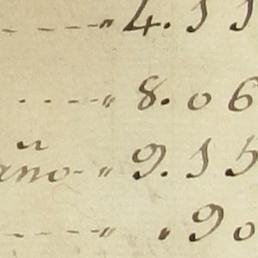 ----" 4.55
----" 8.06
año-" 9.55
----" .90